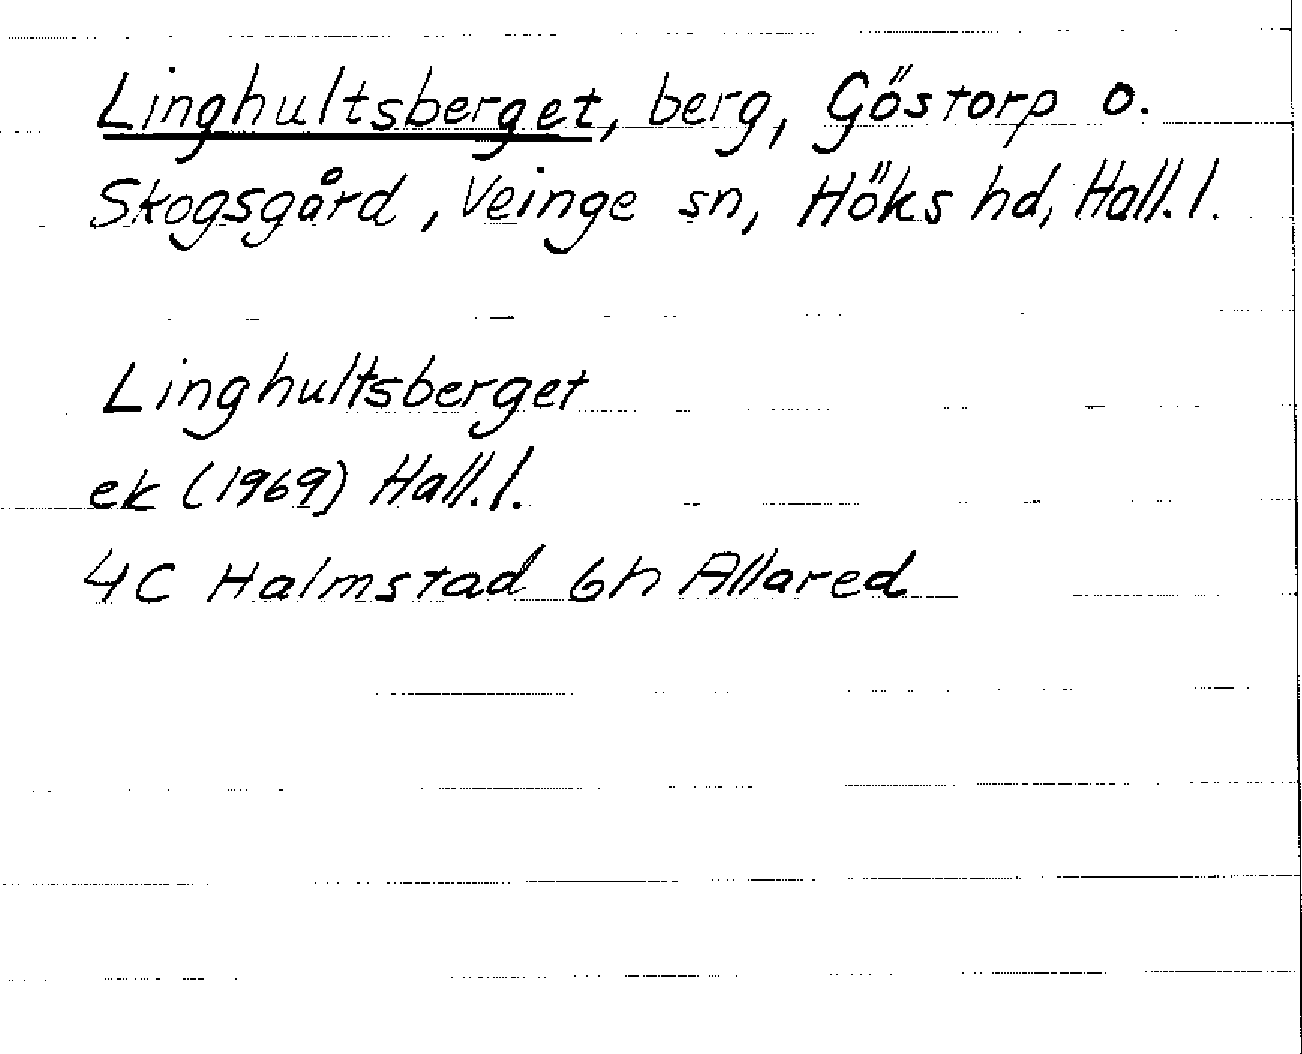 Linghultsberget, berg, Göstorp o.
Skogsgård, Veinge sn, Höks hd, Hall.l.
Linghultsberget
ek (1969) Hall.l.
4C Halmstad 6h Allared